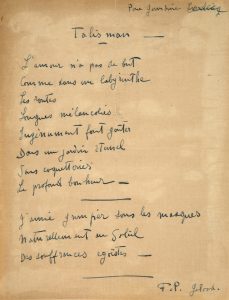 Pour
Talisman —
L'amour n'a pas de but
Comme dans un labyrinthe
Les routes
Longues mélancolies
Ingénument font
Dans un jardin éternel
Sans coquetteries
Le profond bonheur —
J'aime grimper sous les masques
Naturellement au Soleil
Des souffrances égoïstes —
F. P.